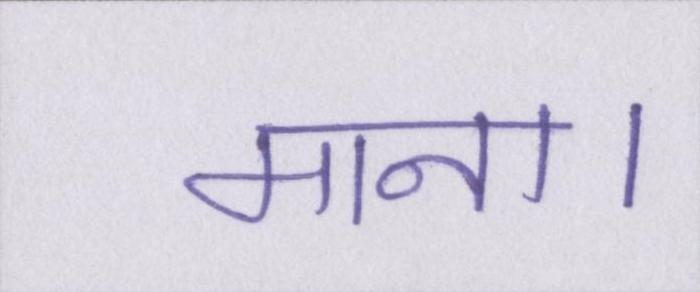 माना।